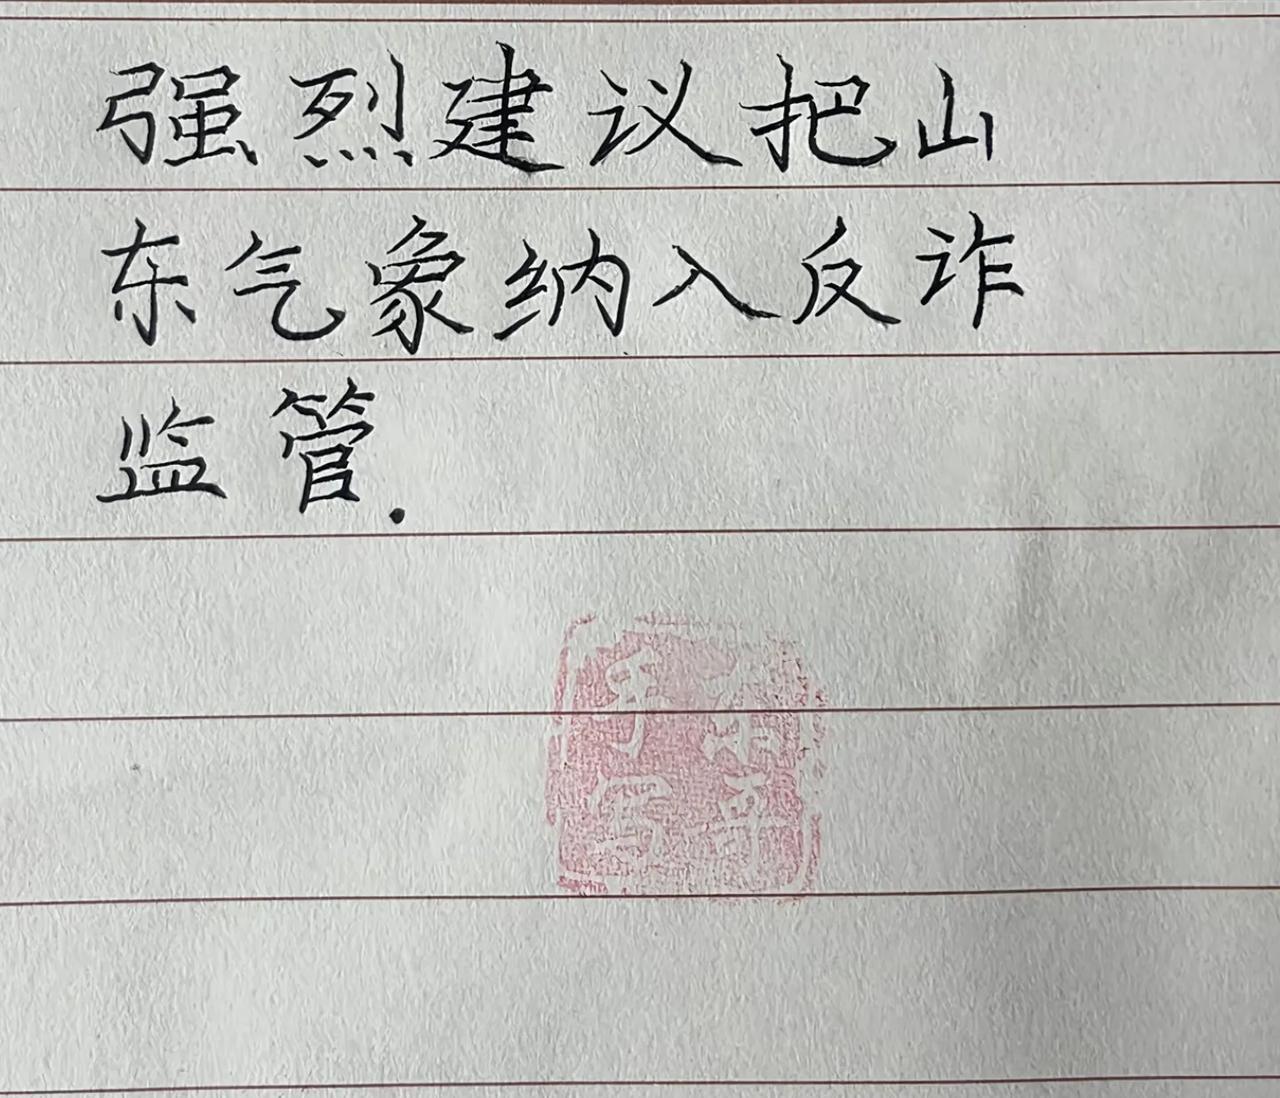 强烈建议把山
东气象纳入反诈
监管.